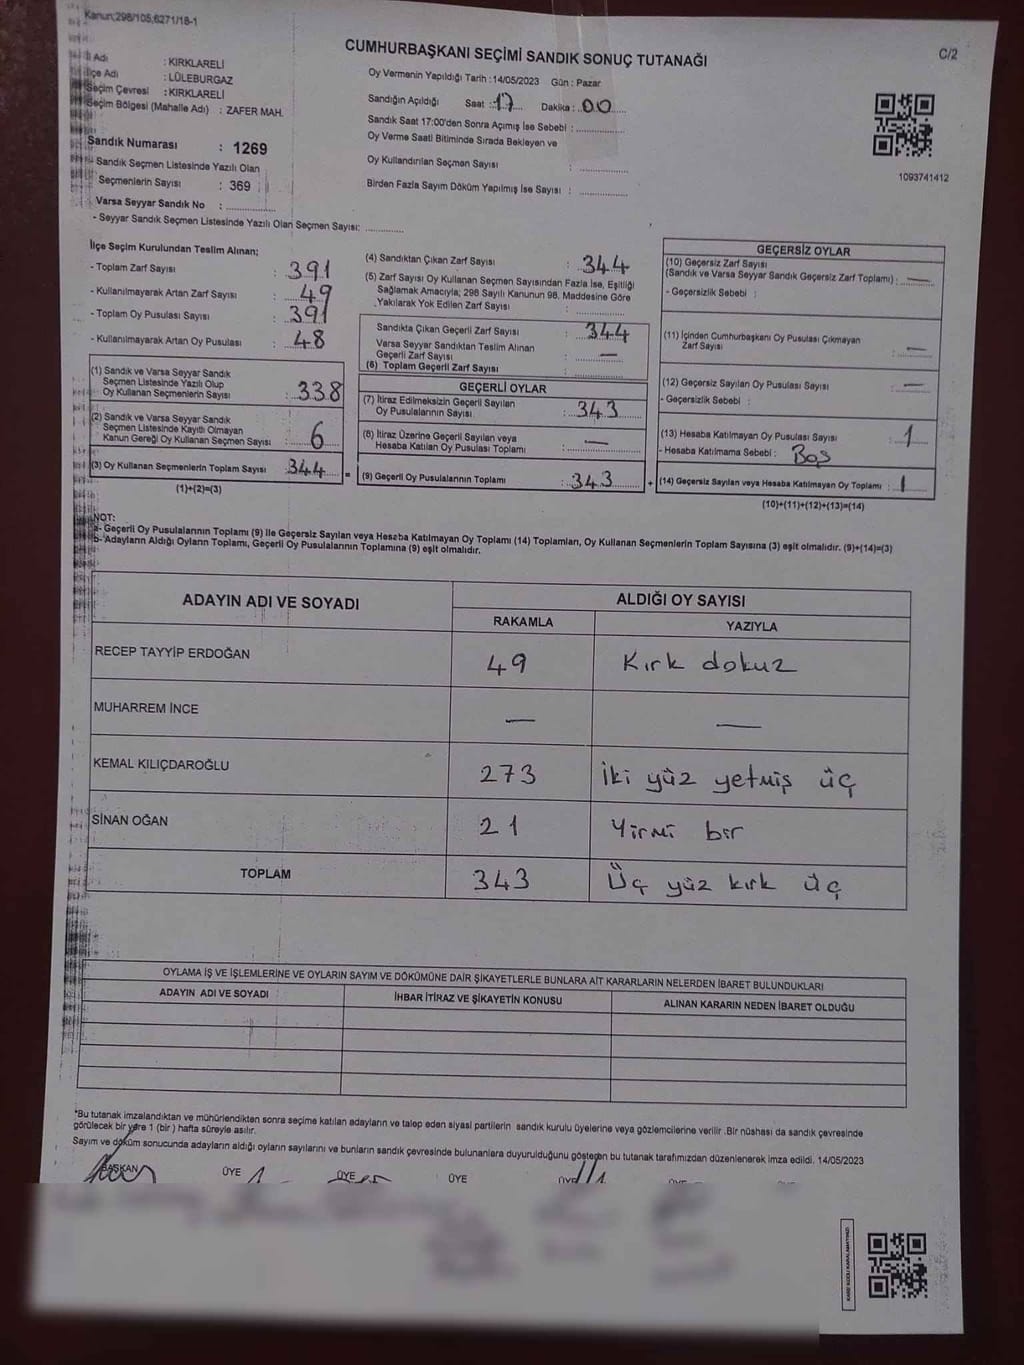 Kanun;298/105,6271/18-1
C/2
CUMHURBAŞKANI SEÇİMİ SANDIK SONUÇ TUTANAĞI
İl Adı : KIRKLARELİ
İlçe Adı : LÜLEBURGAZ
Seçim Çevresi : KIRKLARELİ
Seçim Bölgesi (Mahalle Adı) : ZAFER MAH.
Sandık Numarası : 1269
- Sandık Seçmen Listesinde Yazılı Olan
Seçmenlerin Sayısı : 369
Varsa Seyyar Sandık No : ..............
- Seyyar Sandık Seçmen Listesinde Yazılı Olan Seçmen Sayısı: ............
Oy Vermenin Yapıldığı Tarih :14/05/2023 Gün : Pazar
Sandığın Açıldığı Saat : 17 Dakika : 00
Sandık Saat 17:00'den Sonra Açımış İse Sebebi : ..............
Oy Verme Saati Bitiminde Sırada Bekleyen ve
Oy Kullandırılan Seçmen Sayısı : ..............
Birden Fazla Sayım Döküm Yapılmış İse Sayısı : ..............
1093741412
İlçe Seçim Kurulundan Teslim Alınan;
- Toplam Zarf Sayısı : 391
- Kullanılmayarak Artan Zarf Sayısı : 49
- Toplam Oy Pusulası Sayısı : 391
- Kullanılmayarak Artan Oy Pusulası : 48
(1) Sandık ve Varsa Seyyar Sandık
Seçmen Listesinde Yazılı Olup
Oy Kullanan Seçmenlerin Sayısı : 338
(2) Sandık ve Varsa Seyyar Sandık
Seçmen Listesinde Kayıtlı Olmayan
Kanun Gereği Oy Kullanan Seçmen Sayısı : 6
(3) Oy Kullanan Seçmenlerin Toplam Sayısı : 344 =
(1)+(2)=(3)
(4) Sandıktan Çıkan Zarf Sayısı : 344
(5) Zarf Sayısı Oy Kullanan Seçmen Sayısından Fazla İse, Eşitliği
Sağlamak Amacıyla; 298 Sayılı Kanunun 98. Maddesine Göre
Yakılarak Yok Edilen Zarf Sayısı : ..............
Sandıkta Çıkan Geçerli Zarf Sayısı : 344
Varsa Seyyar Sandıktan Teslim Alınan
Geçerli Zarf Sayısı : —
(6) Toplam Geçerli Zarf Sayısı : ..............
GEÇERLİ OYLAR
(7) İtiraz Edilmeksizin Geçerli Sayılan
Oy Pusulalarının Sayısı : 343
(8) İtiraz Üzerine Geçerli Sayılan veya
Hesaba Katılan Oy Pusulası Toplamı : —
(9) Geçerli Oy Pusulalarının Toplamı : 343 +
GEÇERSİZ OYLAR
(10) Geçersiz Zarf Sayısı
(Sandık ve Varsa Seyyar Sandık Geçersiz Zarf Toplamı) : —
- Geçersizlik Sebebi :
(11) İçinden Cumhurbaşkanı Oy Pusulası Çıkmayan
Zarf Sayısı : —
(12) Geçersiz Sayılan Oy Pusulası Sayısı : —
- Geçersizlik Sebebi :
(13) Hesaba Katılmayan Oy Pusulası Sayısı : 1
- Hesaba Katılmama Sebebi : Boş
(14) Geçersiz Sayılan veya Hesaba Katılmayan Oy Toplamı : 1
(10)+(11)+(12)+(13)=(14)
NOT:
a- Geçerli Oy Pusulalarının Toplamı (9) ile Geçersiz Sayılan veya Hesaba Katılmayan Oy Toplamı (14) Toplamları, Oy Kullanan Seçmenlerin Toplam Sayısına (3) eşit olmalıdır. (9)+(14)=(3)
b- Adayların Aldığı Oyların Toplamı, Geçerli Oy Pusulalarının Toplamına (9) eşit olmalıdır.
ADAYIN ADI VE SOYADI ALDIĞI OY SAYISI
RAKAMLA YAZIYLA
RECEP TAYYİP ERDOĞAN 49 Kırk dokuz
MUHARREM İNCE — —
KEMAL KILIÇDAROĞLU 273 İki yüz yetmiş üç
SİNAN OĞAN 21 Yirmi bir
TOPLAM 343 Üç yüz kırk üç
OYLAMA İŞ VE İŞLEMLERİNE VE OYLARIN SAYIM VE DÖKÜMÜNE DAİR ŞİKAYETLERLE BUNLARA AİT KARARLARIN NELERDEN İBARET BULUNDUKLARI
ADAYIN ADI VE SOYADI İHBAR İTİRAZ VE ŞİKAYETİN KONUSU ALINAN KARARIN NEDEN İBARET OLDUĞU
*Bu tutanak imzalandıktan ve mühürlendikten sonra seçime katılan adayların ve talep eden siyasi partilerin sandık kurulu üyelerine veya gözlemcilerine verilir .Bir nüshası da sandık çevresinde
görülecek bir yere 1 (bir) hafta süreyle asılır.
Sayım ve döküm sonucunda adayların aldığı oyların sayılarını ve bunların sandık çevresinde bulunanlara duyurulduğunu gösteren bu tutanak tarafımızdan düzenlenerek imza edildi. 14/05/2023
BAŞKAN ÜYE ÜYE ÜYE